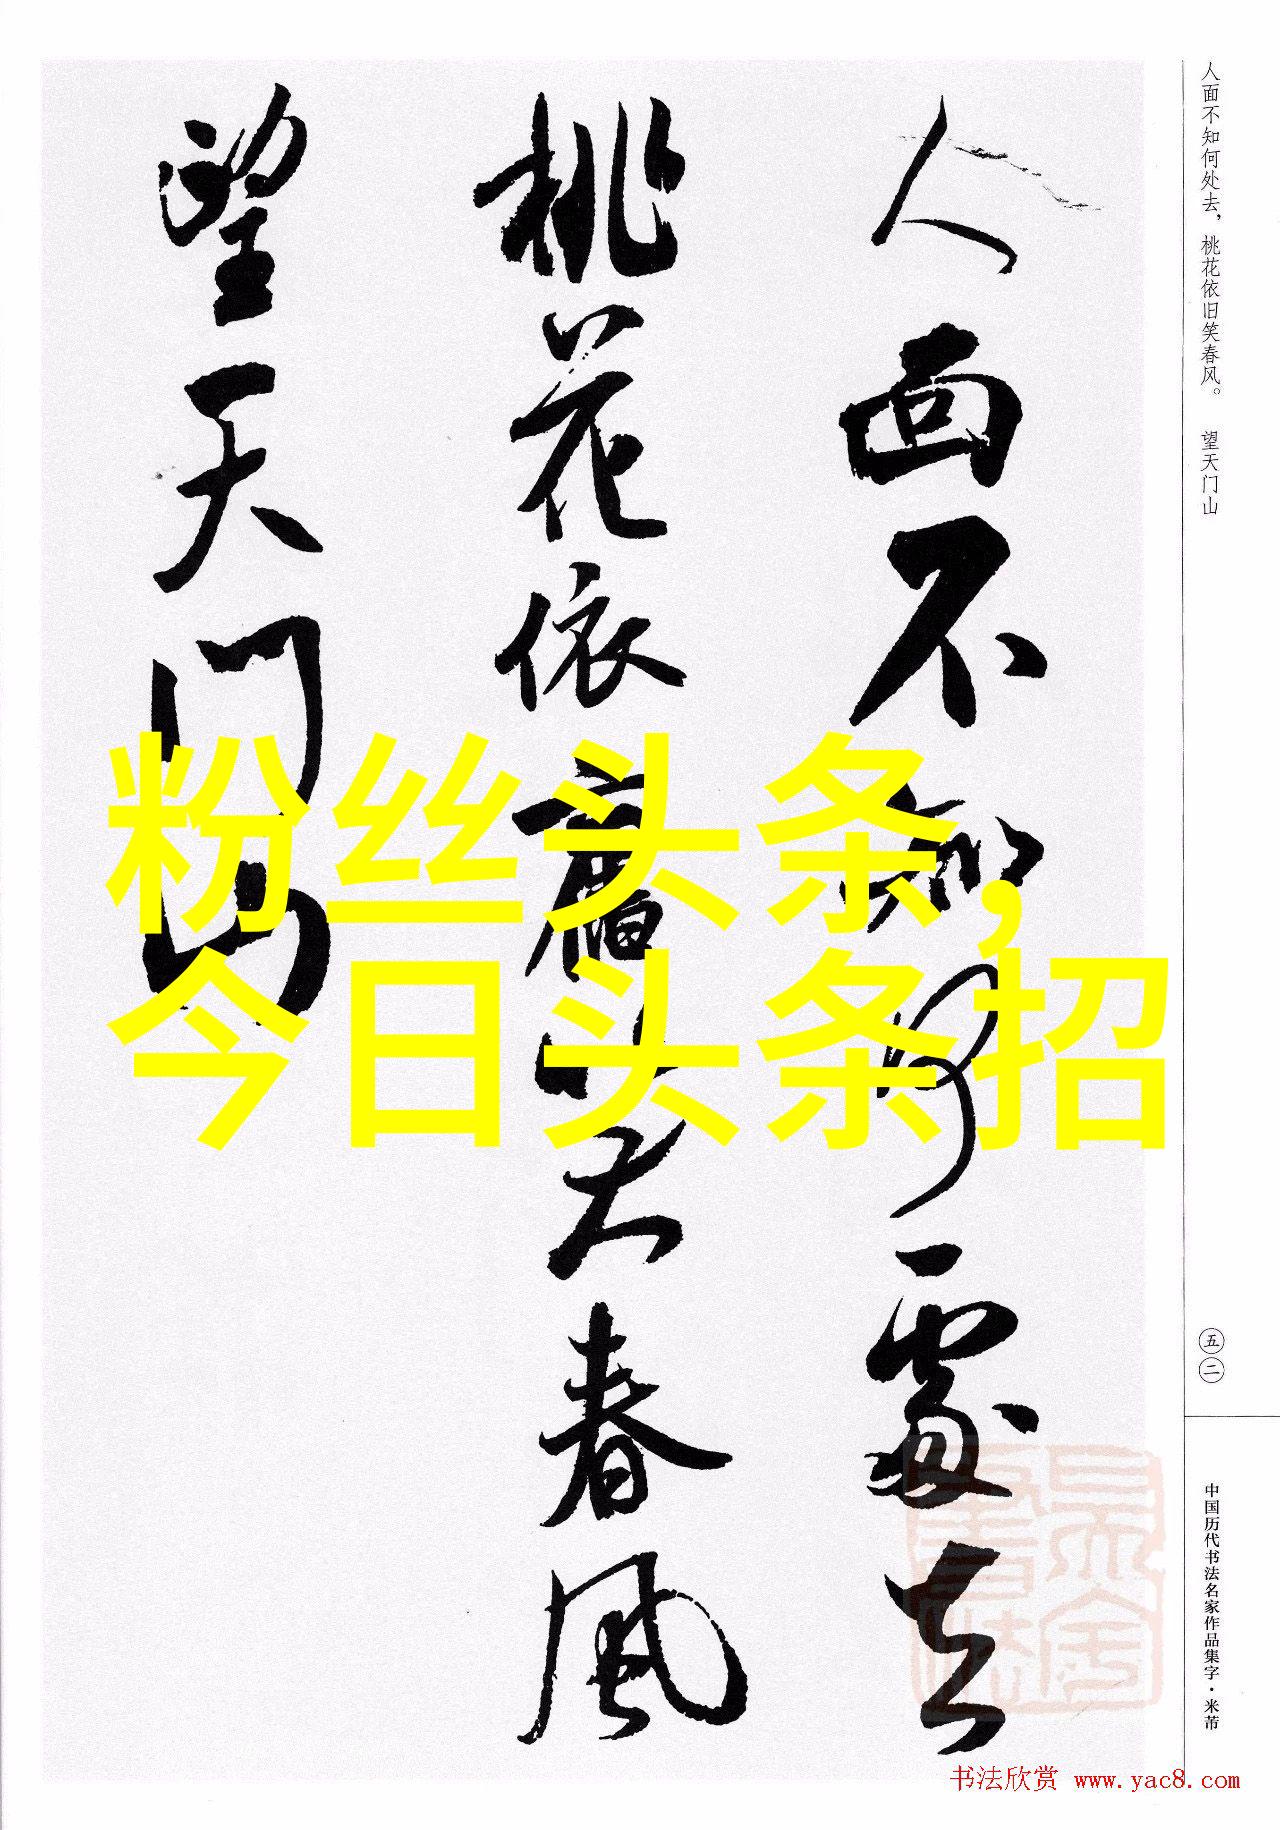 人面不知何處去
桃花依舊笑春風
望天门山
粉丝头条,
今日头条招
人面不知何处去，桃花依旧笑春风。 望天门山
五二
中国历代书法名家作品集字·米芾
书法欣赏 www.yac8.com